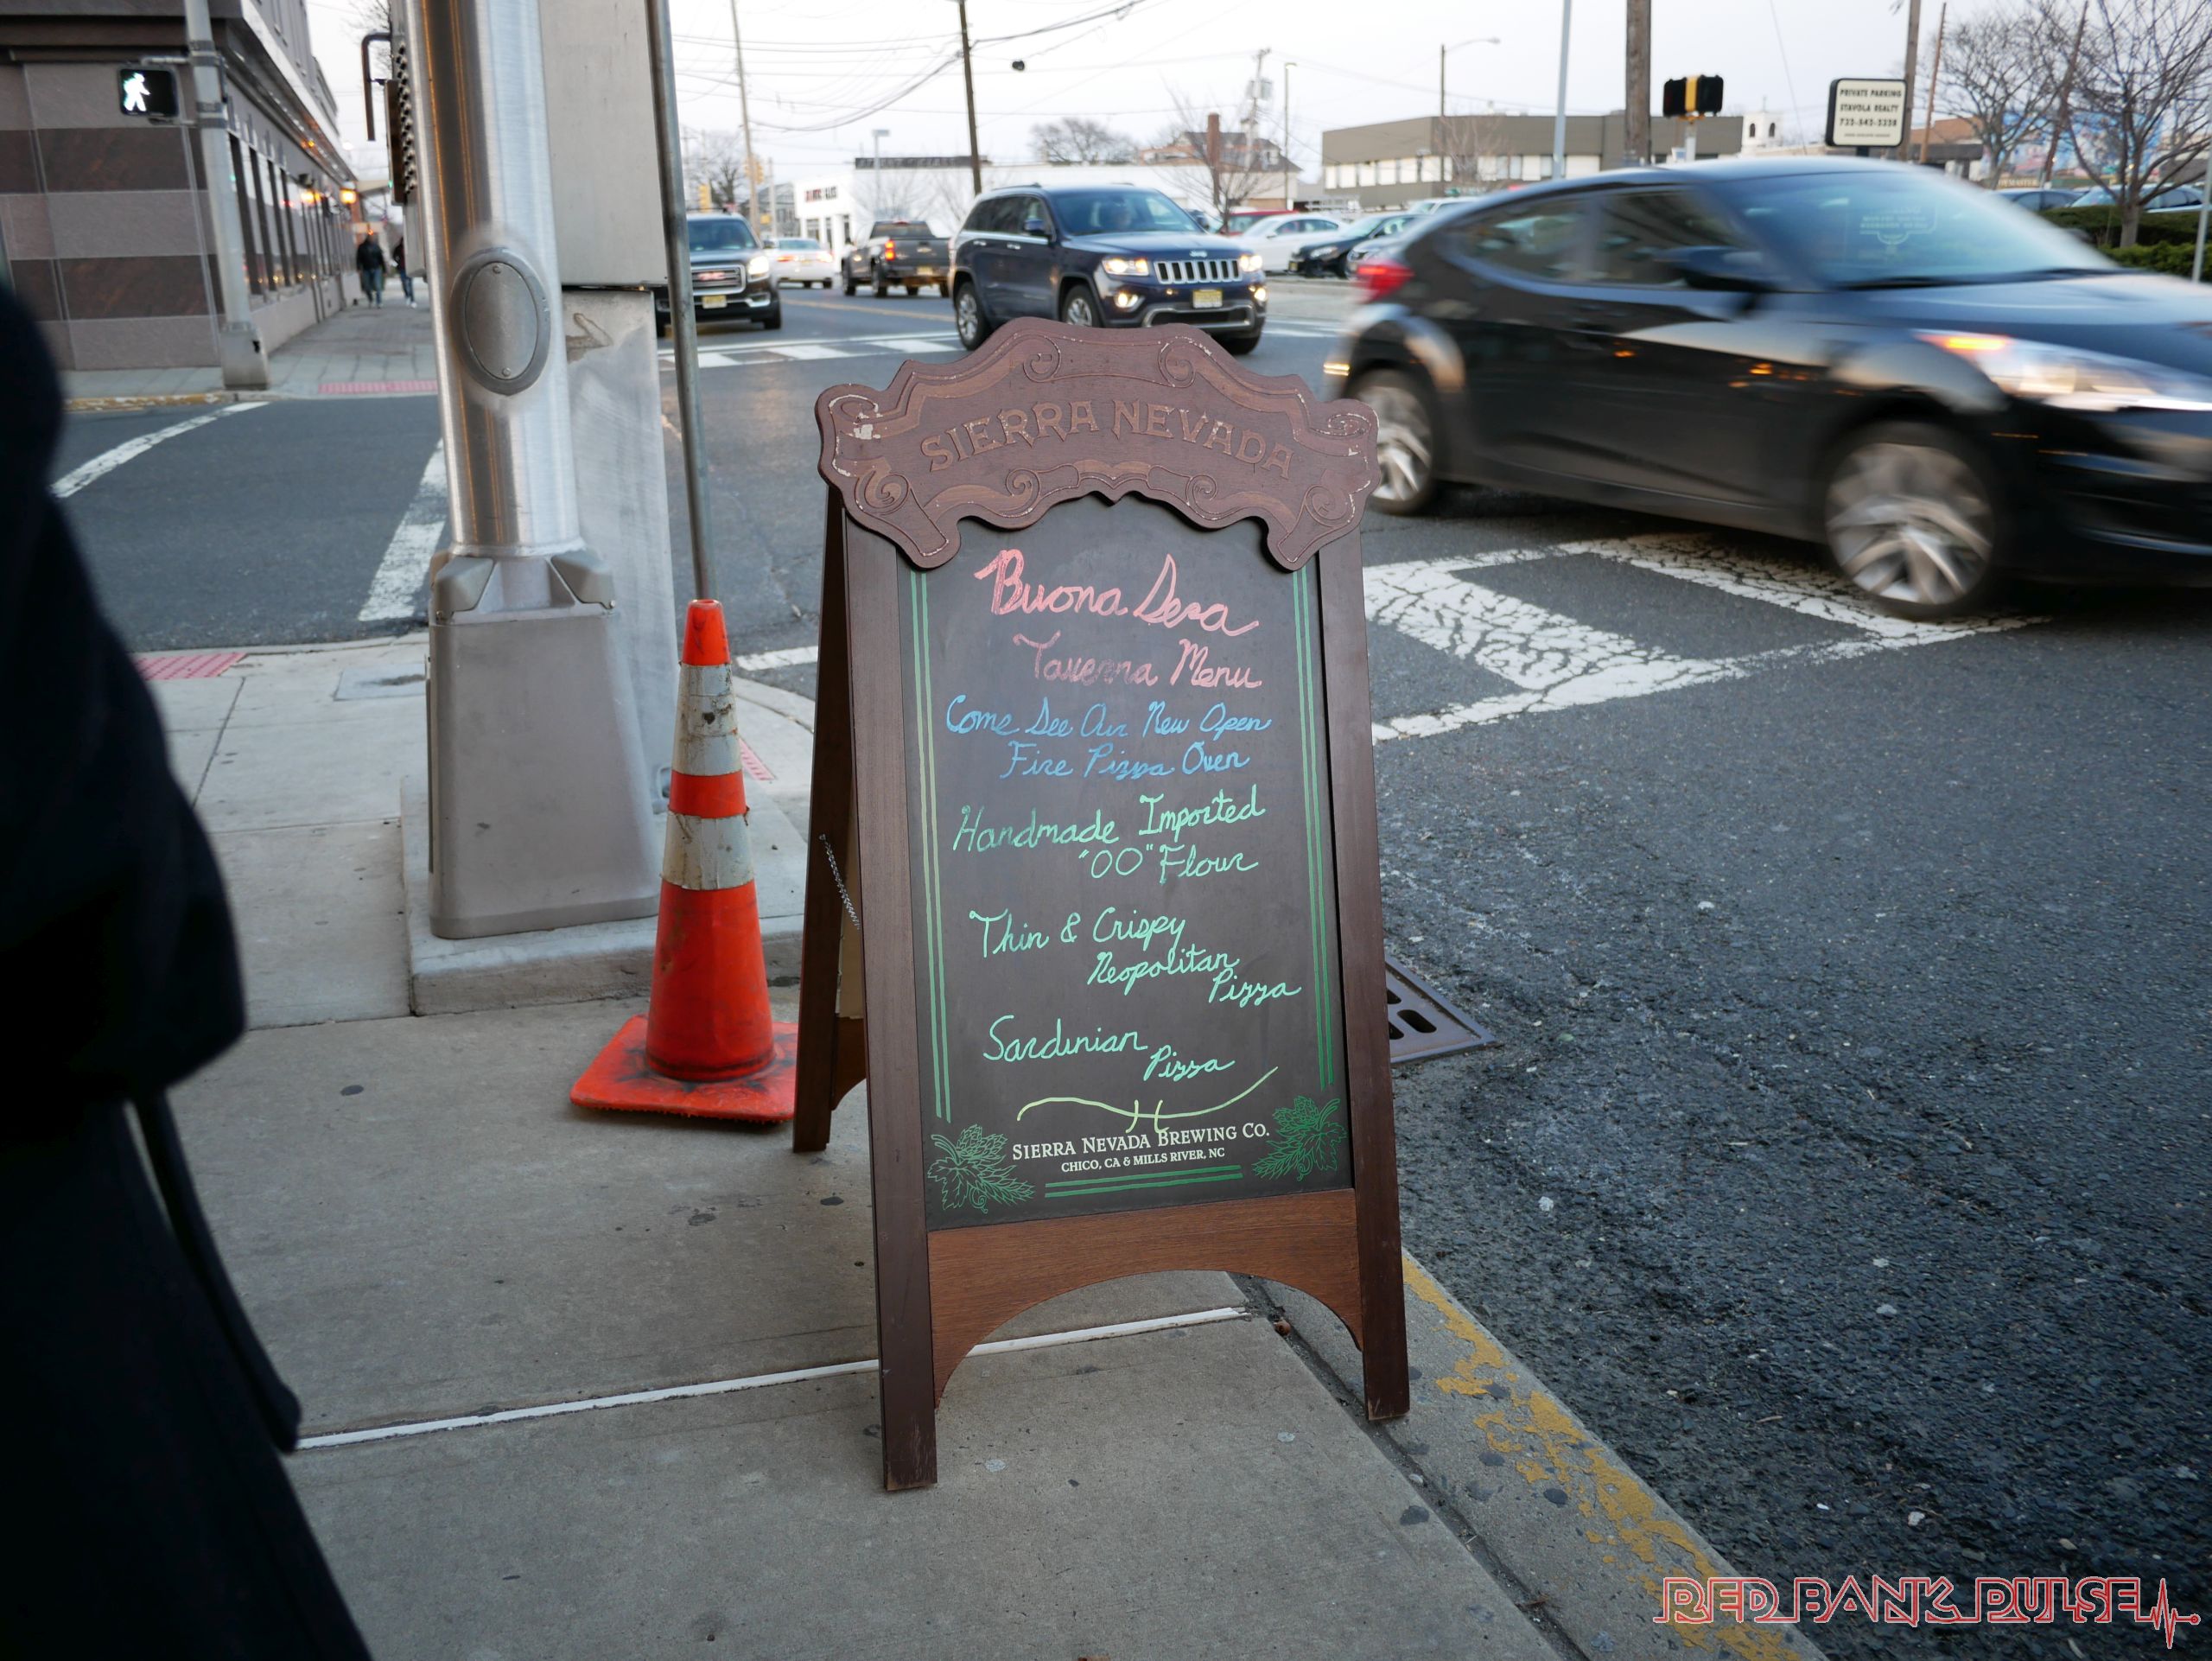 PRIVATE PARKING
STAVOLA REALTY
732-542-2328
SIERRA NEVADA
Buona Sera
Taverna Menu
Come See Our New Open
Fire Pizza Oven
Handmade Imported
"OO" Flour
Thin & Crispy
Neopolitan
Pizza
Sardinian
Pizza
SIERRA NEVADA BREWING CO.
CHICO, CA & MILLS RIVER, NC
RED BANK PULSE